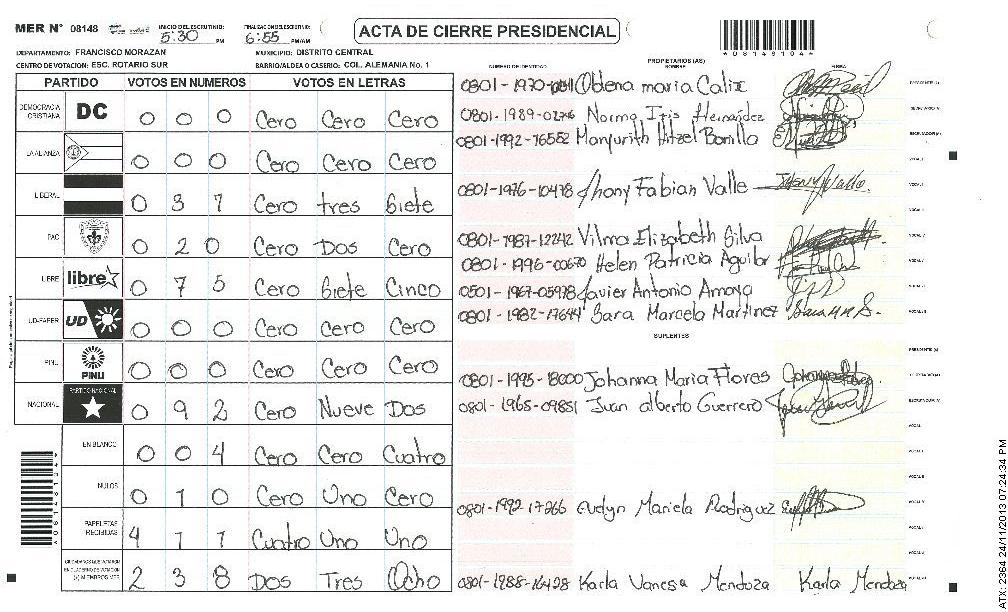 MER Nº 08148 INICIO DEL ESCRUTINIO: 5:30 PM FINALIZACION ESCRUTINIO: 6:55 PM/AM ACTA DE CIERRE PRESIDENCIAL
*08148104*
DEPARTAMENTO: FRANCISCO MORAZAN MUNICIPIO: DISTRITO CENTRAL
CENTRO DE VOTACION: ESC. ROTARIO SUR BARRIO/ALDEA O CASERIO: COL. ALEMANIA No. 1
PARTIDO VOTOS EN NUMEROS VOTOS EN LETRAS
DEMOCRACIA CRISTIANA DC 0 0 0 Cero Cero Cero
LA ALIANZA 0 0 0 Cero Cero Cero
LIBERAL 0 3 7 Cero tres Siete
PAC 0 2 0 Cero Dos Cero
LIBRE libre 0 7 5 Cero Siete Cinco
UD-FAPER UD 0 0 0 Cero Cero Cero
PINU PINU 0 0 0 Cero Cero Cero
NACIONAL PARTIDO NACIONAL 0 9 2 Cero Nueve Dos
EN BLANCO 0 0 4 Cero Cero Cuatro
NULOS 0 1 0 Cero Uno Cero
PAPELETAS RECIBIDAS 4 1 1 Cuatro Uno Uno
CIUDADANOS QUE VOTARON EN CUADERNO DE VOTACION (+) MIEMBROS MER 2 3 8 Dos Tres Ocho
PROPIETARIOS (AS)
NUMERO DE IDENTIDAD NOMBRE FIRMA
maria Calix PRESIDENTE (A)
0801-1989- Norma Iris Hernandez SECRETARIO (A)
0801-1992-16552 Hitzel Bonilla ESCRUTADOR (A)
0801-1976-10478 Jhony Fabian Valle Jhony Valle.
0801-1987-12242 Vilma Elizabeth Silva
0801-1996-00670 Helen Patricia Aguilar
0501-1967-05978 Javier Antonio Amaya
0801-1982-17644 Sara Marcela Martinez
SUPLENTES
PRESIDENTE (A)
0801-1995-18000 Johanna Maria Flores
0801-1965-09851 Juan alberto Guerrero
0801-1992 17266 Evelyn Mariela Rodriguez
0801-1988-16428 Karla Vanesa Mendoza Karla Mendoza
ATX: 2364 24/11/2013 07:24:34 PM